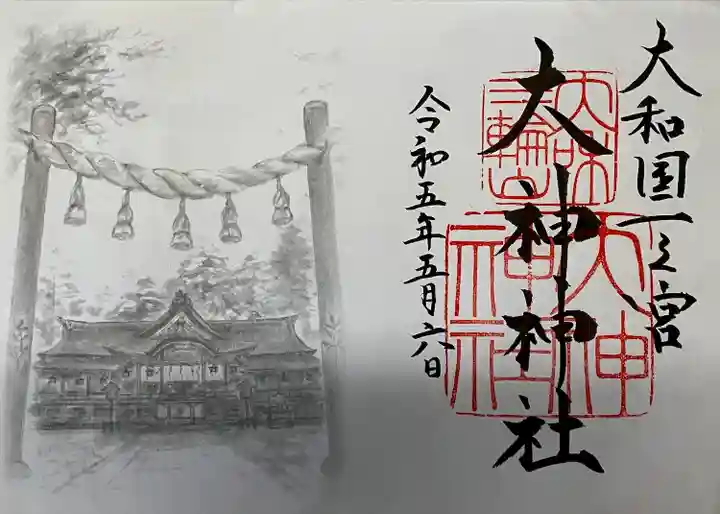 大和国一之宮
大神神社
令和五年五月六日
大神
神社